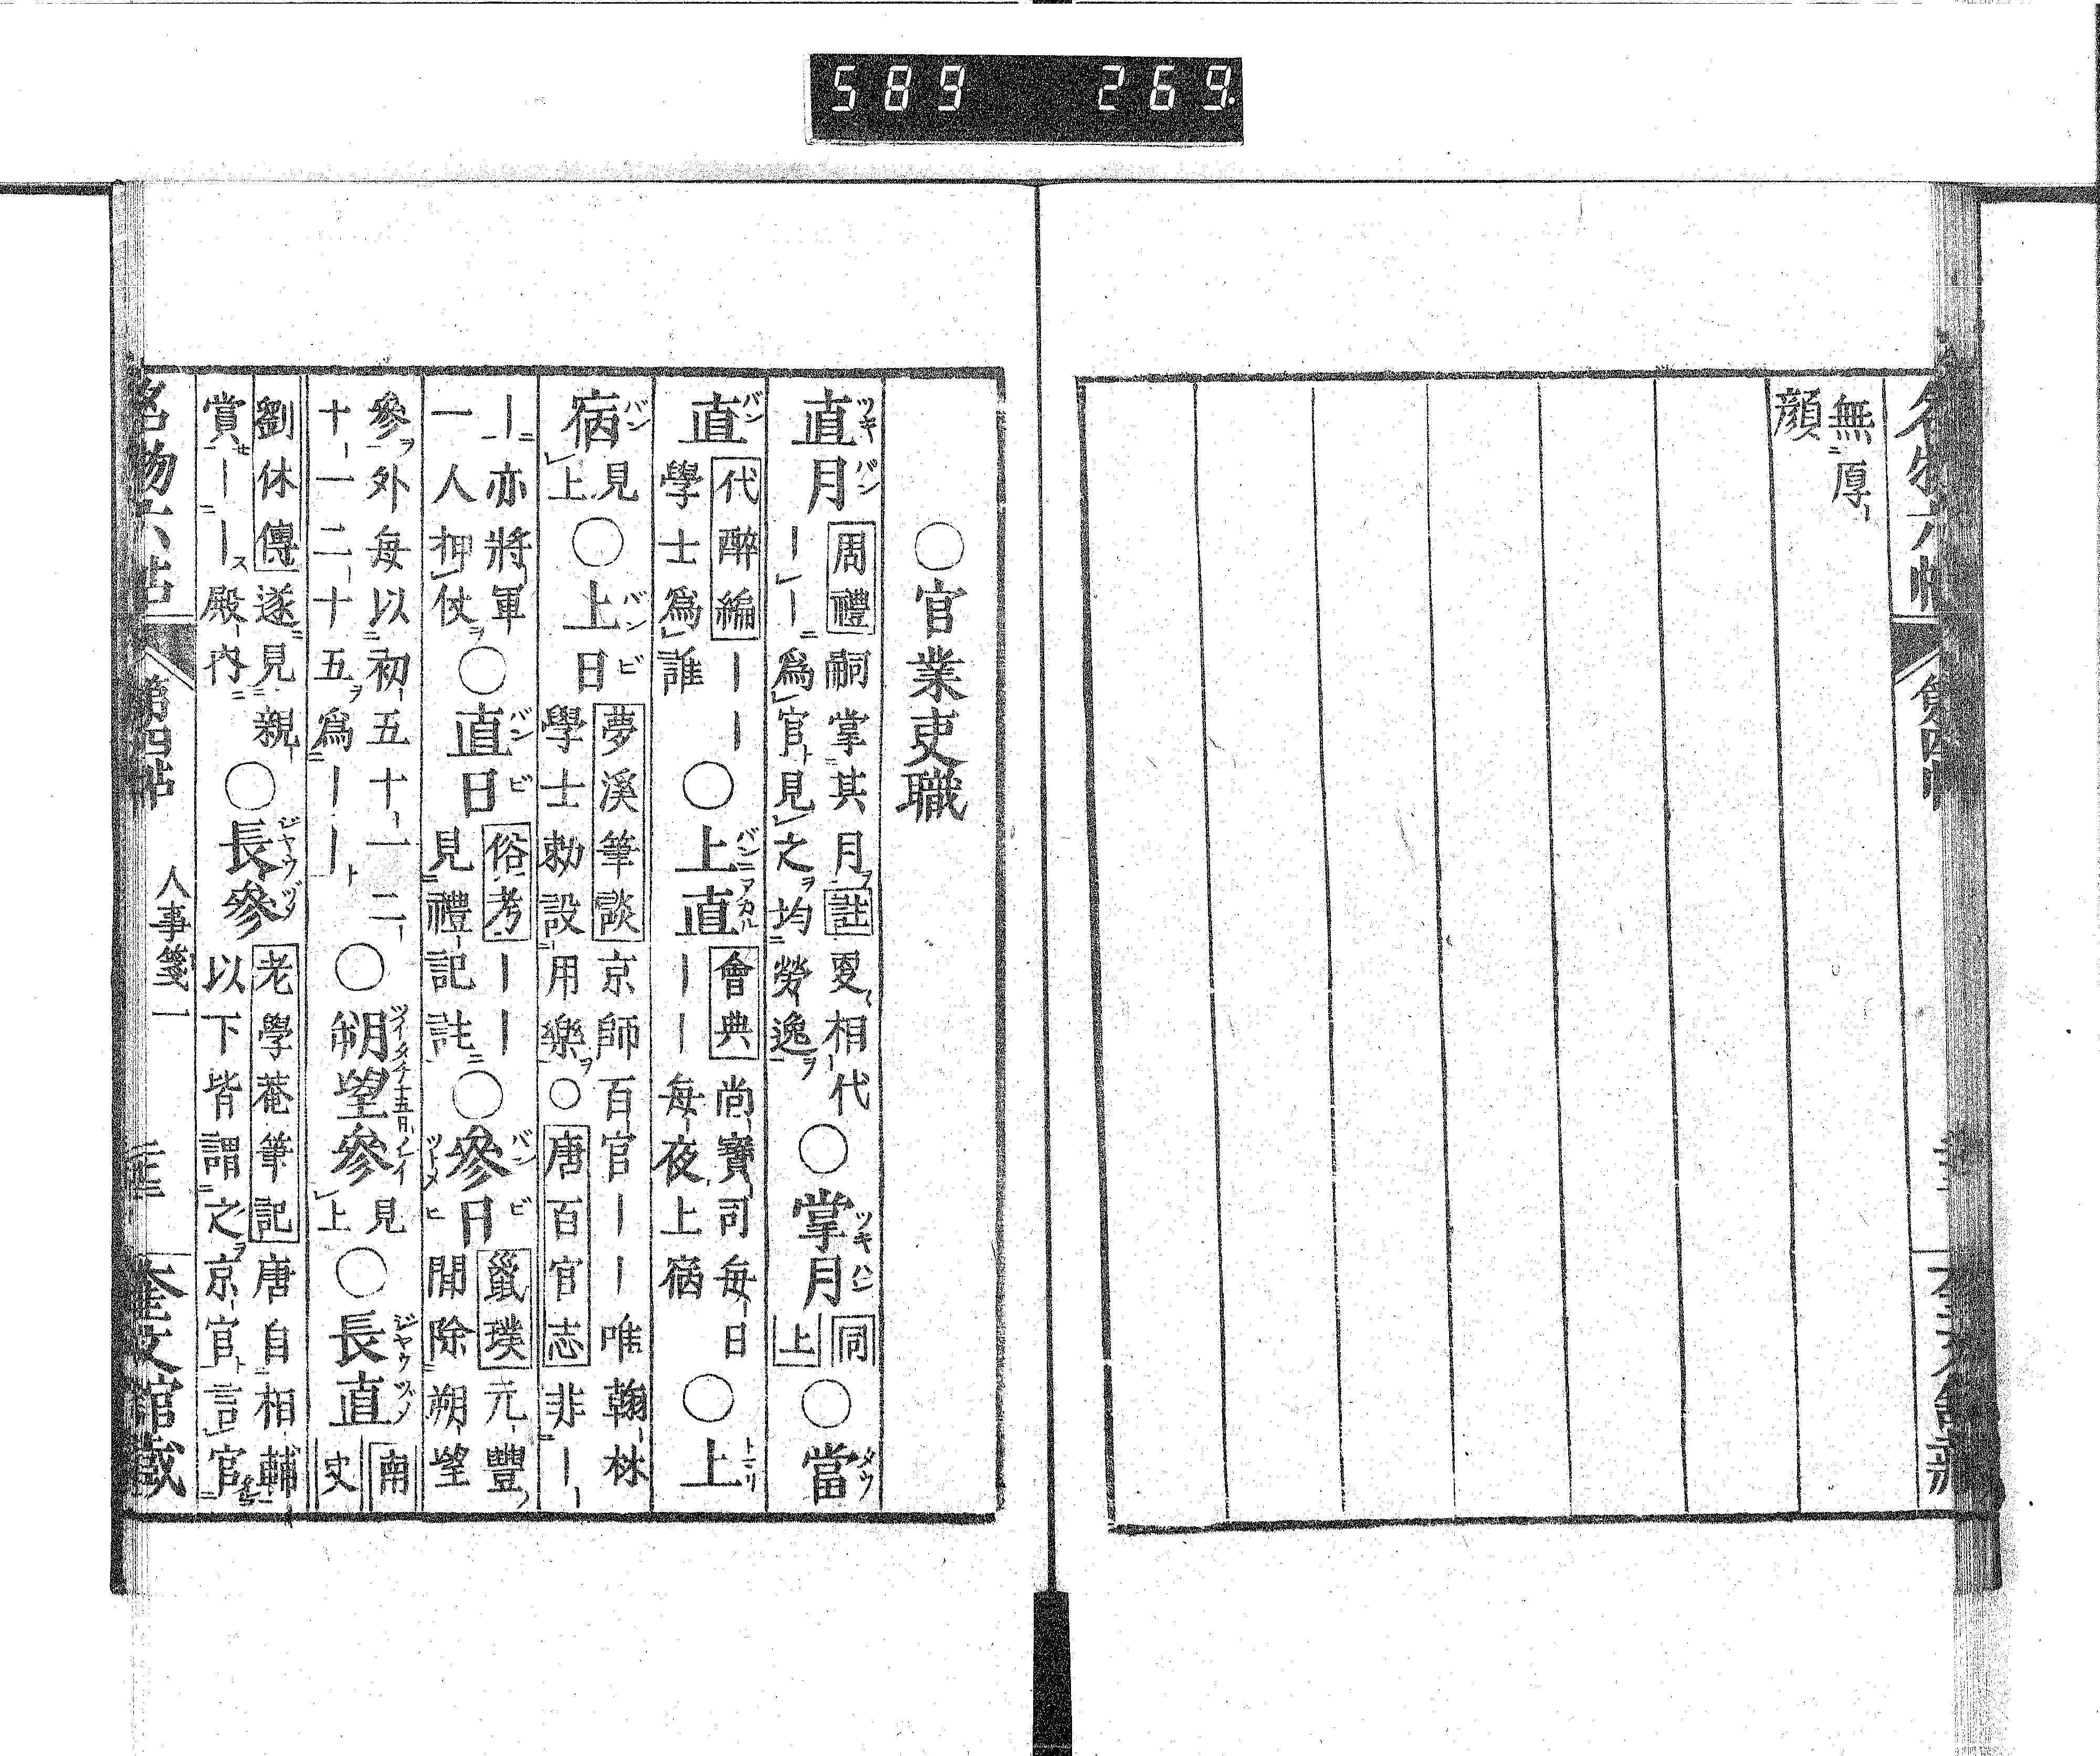 589 269
無厚
顔
○官業吏職
直月 周禮 嗣掌其月 註 更相代
――爲官見之均勞逸 ○掌月 同上 ○當
直 代醉編 ――
學士爲誰 ○上直 會典 尚寶司每日
――每夜上宿 ○上
病 見上 ○上日 夢溪筆談 京師百官――唯翰林
學士勅設用樂 ○ 唐百官志 非――
―亦將軍
一人押仗 ○直日 俗考 ――
見禮記註 ○參日 蠡璞 元豐
閒除朔望
參外每以初五十一二
十一二十五爲―― ○朔望參 見上 ○長直 南史
劉休傳 遂見親
賞――殿内 ○長參 老學菴筆記 唐自相輔
以下皆謂之京官言官
名物六帖 第四帖 人事箋一 奎文館藏